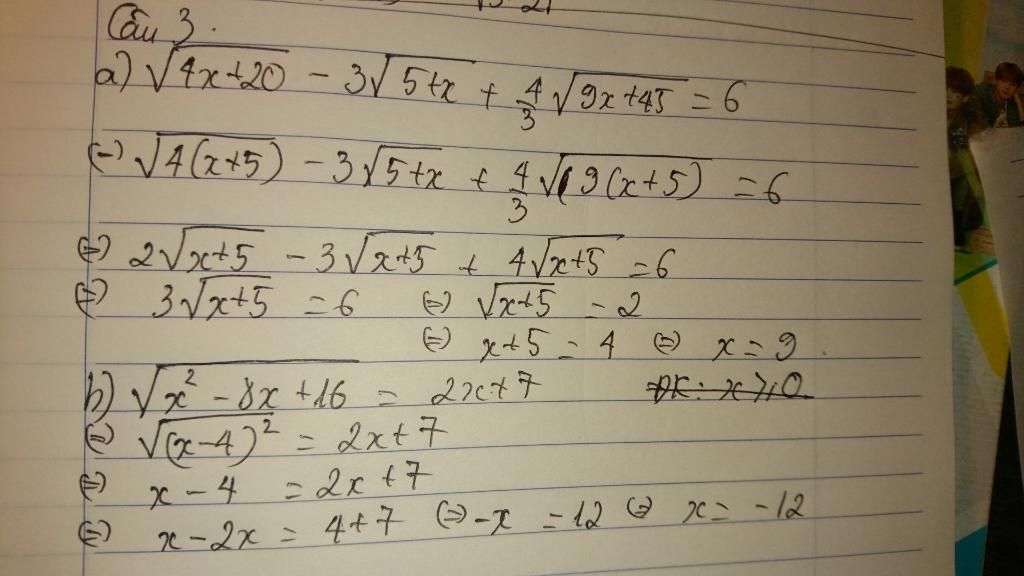 Câu 3.
a) √(4x+20) - 3√(5+x) + 4/3 √(9x+45) = 6
(=) √(4(x+5)) - 3√(5+x) + 4/3 √(9(x+5)) = 6
(=) 2√(x+5) - 3√(x+5) + 4√(x+5) = 6
(=) 3√(x+5) = 6 (=) √(x+5) = 2
(=) x+5 = 4 (=) x = 9.
b) √(x² - 8x + 16) = 2x+7 ĐK: x ≥ 0
(=) √((x-4)²) = 2x+7
(=) x - 4 = 2x+7
(=) x - 2x = 4+7 (=) -x = 12 (=) x = -12